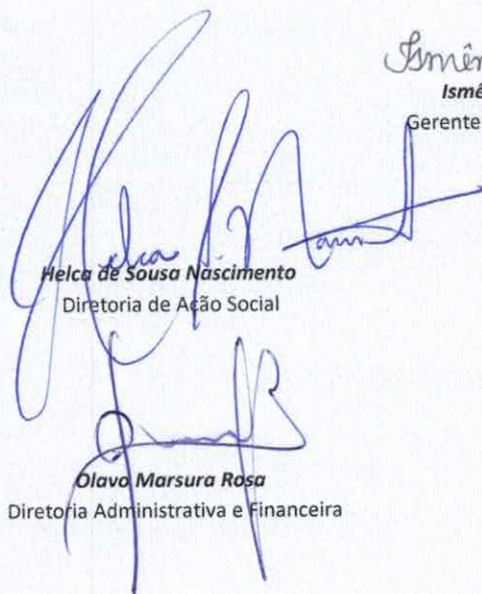 Ismên
Ismê
Gerente
Helca S. Nasm
Helca de Sousa Nascimento
Diretoria de Ação Social
Olavo Marsura Rosa
Diretoria Administrativa e Financeira